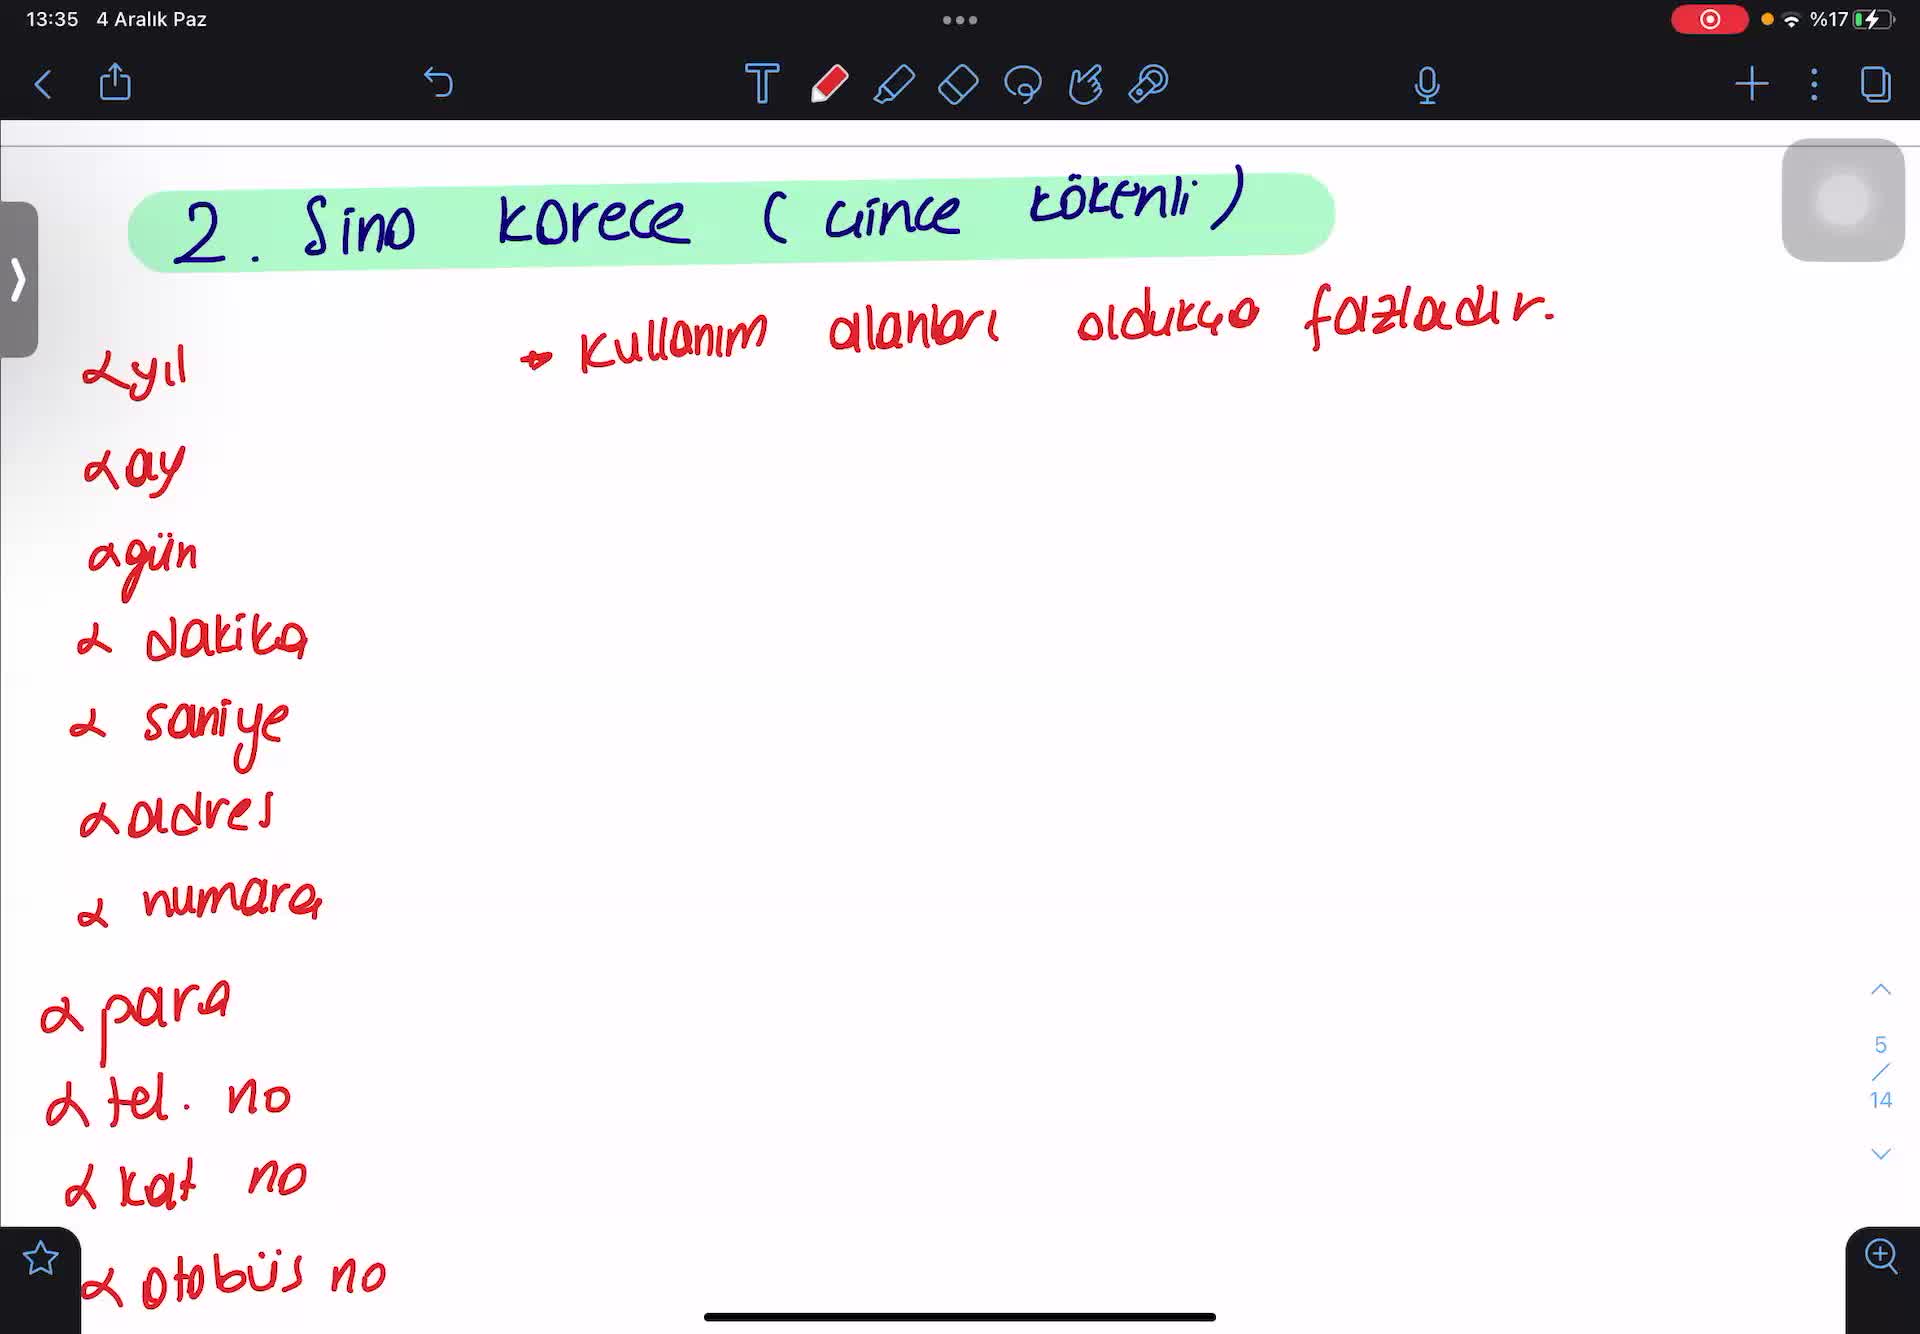 13:35 4 Aralık Paz %17
2. Sino Korece (Çince kökenli)
→ Kullanım alanları oldukça fazladır.
α yıl
α ay
α gün
α dakika
α saniye
α adres
α numara
α para
α tel. no
α kat no
α otobüs no
5
/
14